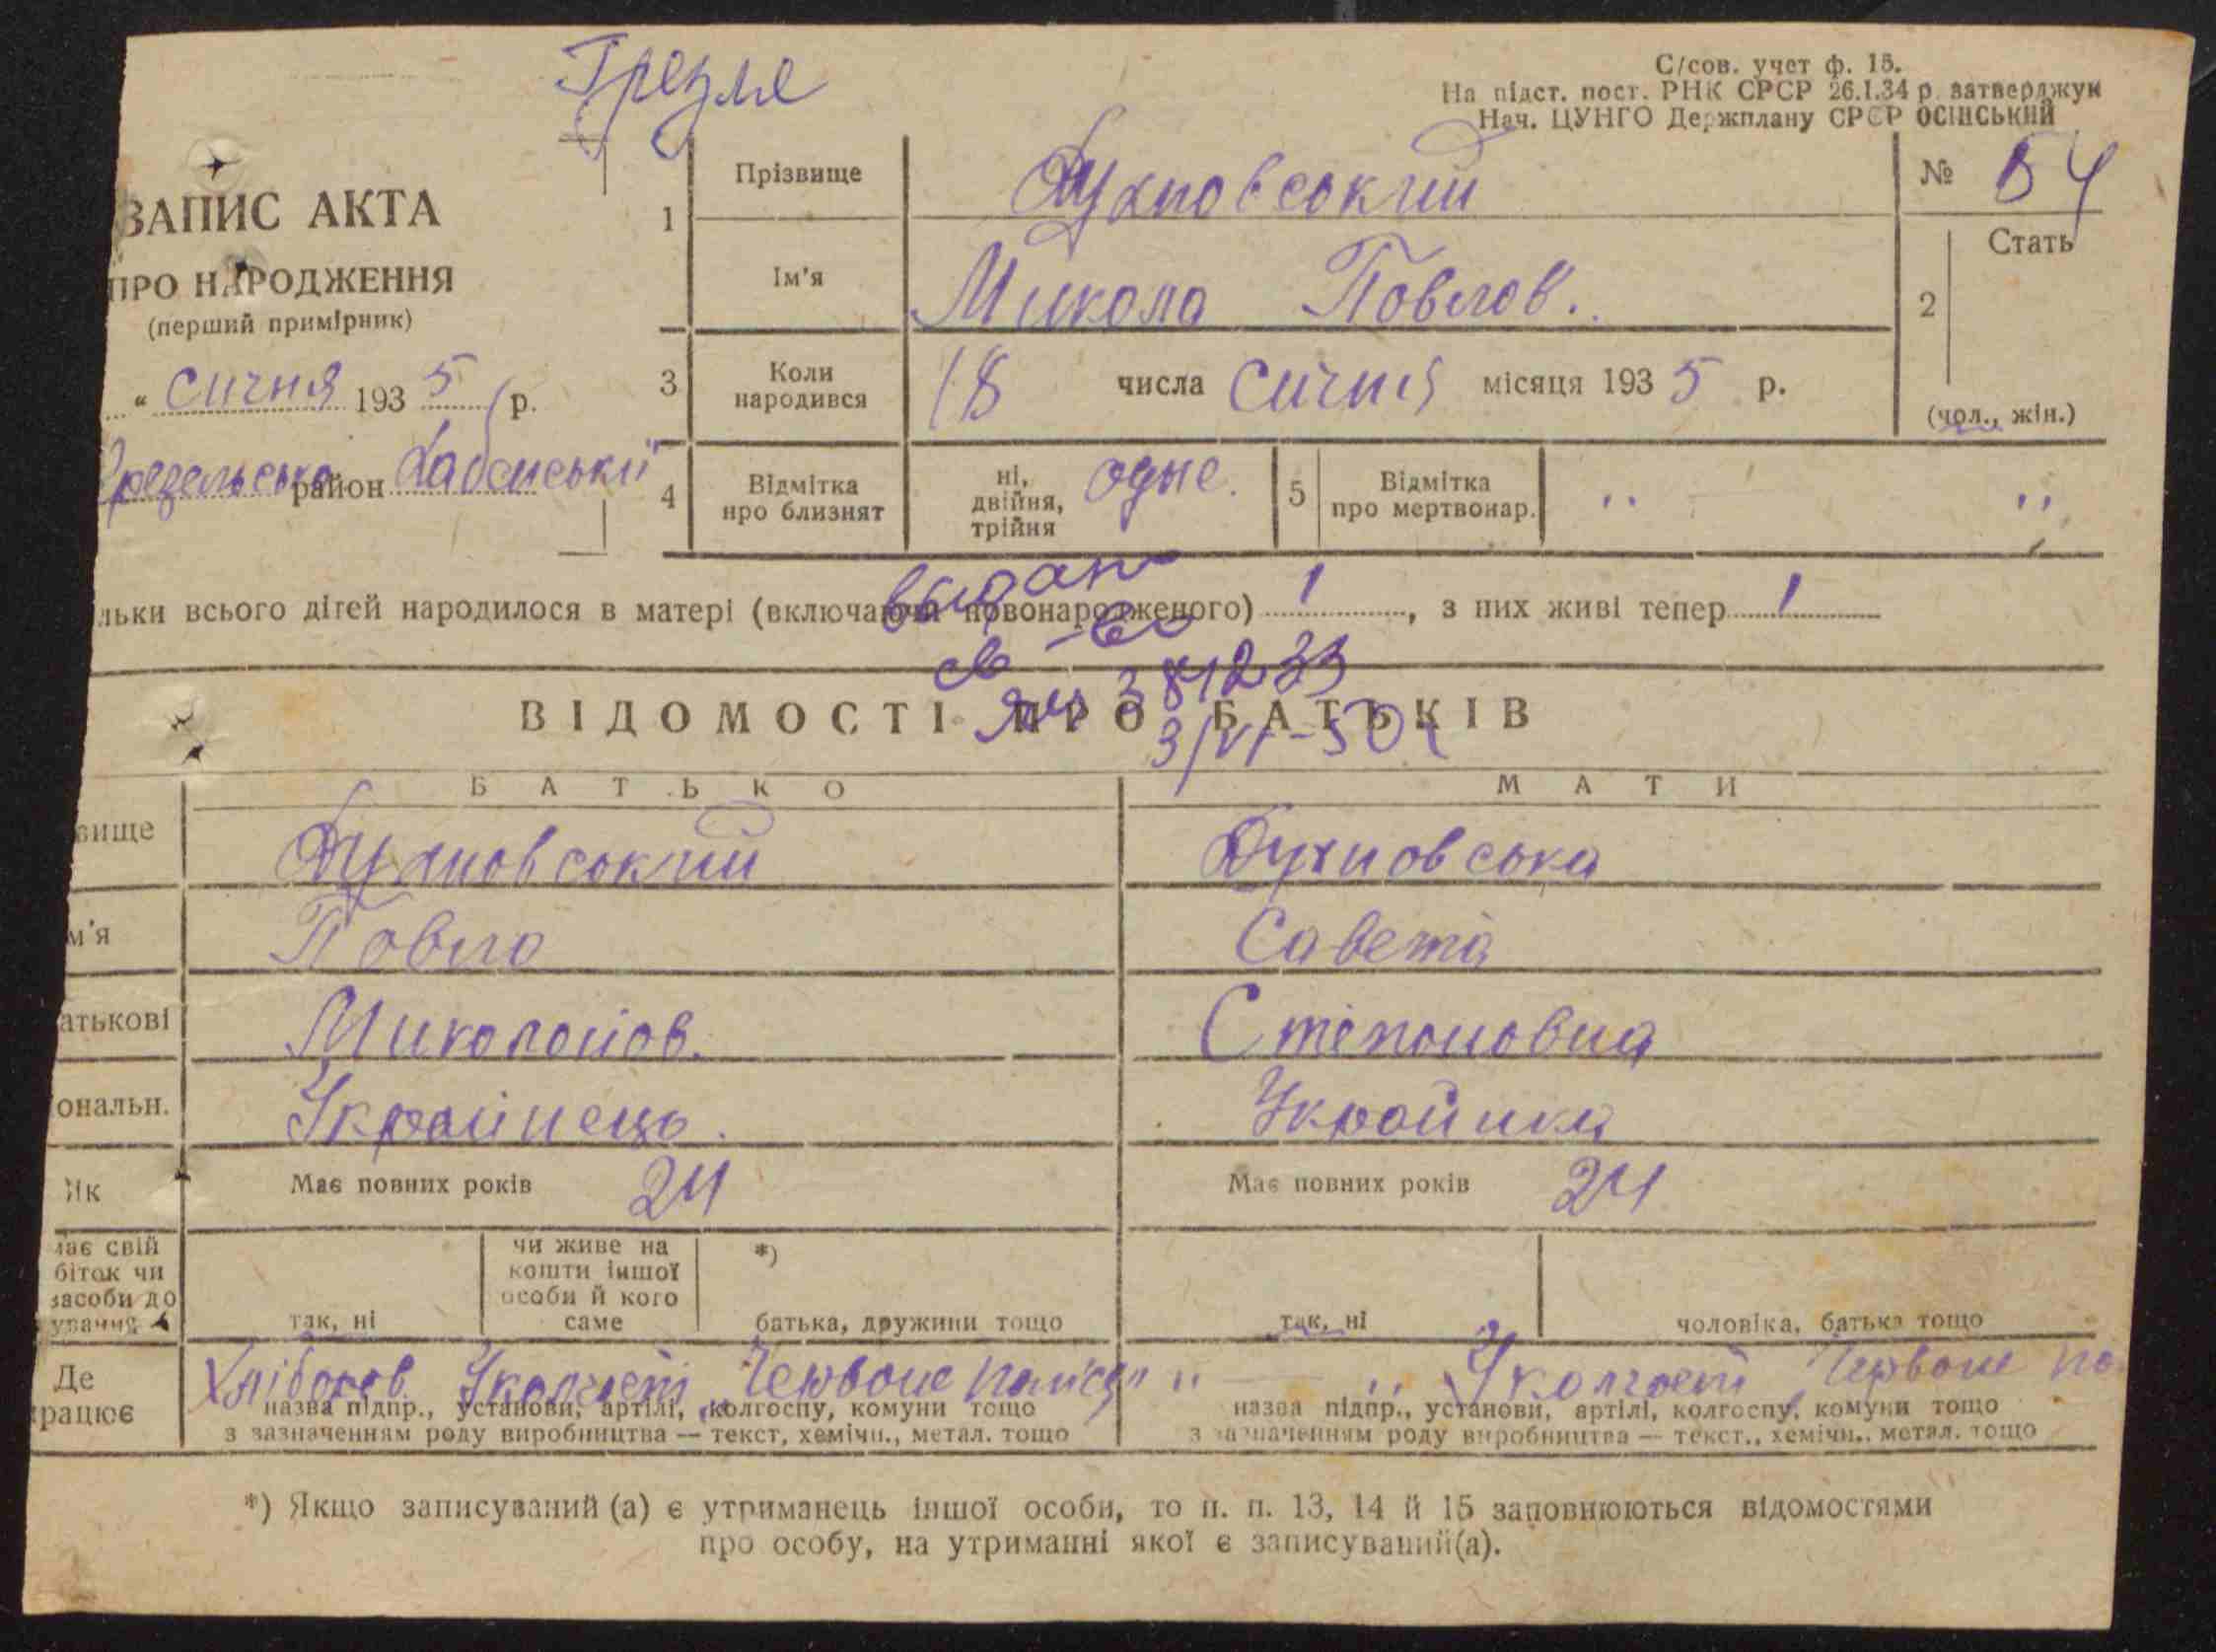 Грезля
С/сов. учет ф. 15.
На підст. пост. РНК СРСР 26.1.34 р. затверджую
Нач. ЦУНГО Держплану СРСР ОСІНСЬКИЙ
ЗАПИС АКТА
ПРО НАРОДЖЕННЯ
(перший примірник)
" сичня 1935 р.
Грезельська район Хабенський
1 Прізвище Духновський
Ім'я Микола Повлов.
№ 54
2 Стать
(чол., жін.)
3 Коли народився 18 числа сичня місяця 1935 р.
4 Відмітка про близнят ні, двійня, трійня одне.
5 Відмітка про мертвонар. " "
льки всього дітей народилося в матері (включаючи новонародженого) 1, з них живі тепер 1
выдано
св-во
381233
3/VI-50 г
ВІДОМОСТІ ПРО БАТЬКІВ
БАТЬКО МАТИ
вище Духновський Духновська
м'я Повло Савета
атькові Миколойов. Степоновна
ональн. Украйинець. Украйинка
Як Має повних років 24 Має повних років 24
має свій
біток чи
засоби до
ування
так, ні
чи живе на
кошти іншої
особи й кого
саме
*)
батька, дружини тощо
так, ні
чоловіка, батька тощо
Де
працює
Хлібороб. У колгоспі „Червоне " " У колгоспі Червоне по
назва підпр., установи, артілі, колгоспу, комуни тощо
з зазначенням роду виробництва — текст, хемічн., метал. тощо
назва підпр., установи, артілі, колгоспу, комуни тощо
з зазначенням роду виробництва — текст., хемічн., метал. тощо
*) Якщо записуваний (а) є утриманець іншої особи, то п. п. 13, 14 й 15 заповнюються відомостями
про особу, на утриманні якої є записуваний(а).